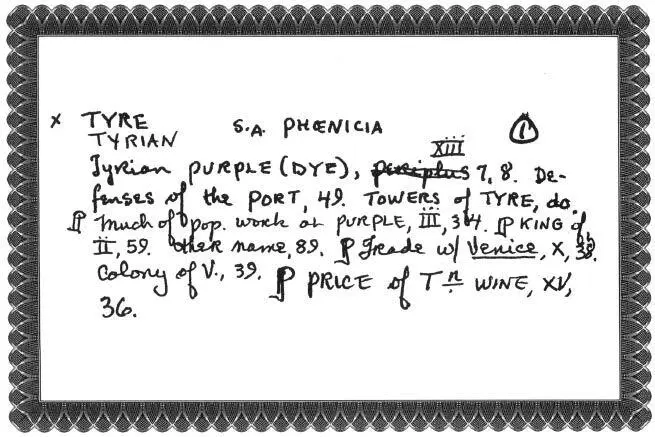 x TYRE S.A. PHŒNICIA 1
TYRIAN
XIII
Tyrian PURPLE (DYE), periplus 7, 8. DE-
fenses of the PORT, 49. TOWERS of TYRE, do.
¶ Much of pop. work at PURPLE, III, 34. ¶ KING of
II, 59. other name, 89. ¶ Trade w/ Venice, X, 38.
Colony of V., 39. ¶ PRICE of Tn WINE, XV,
36.